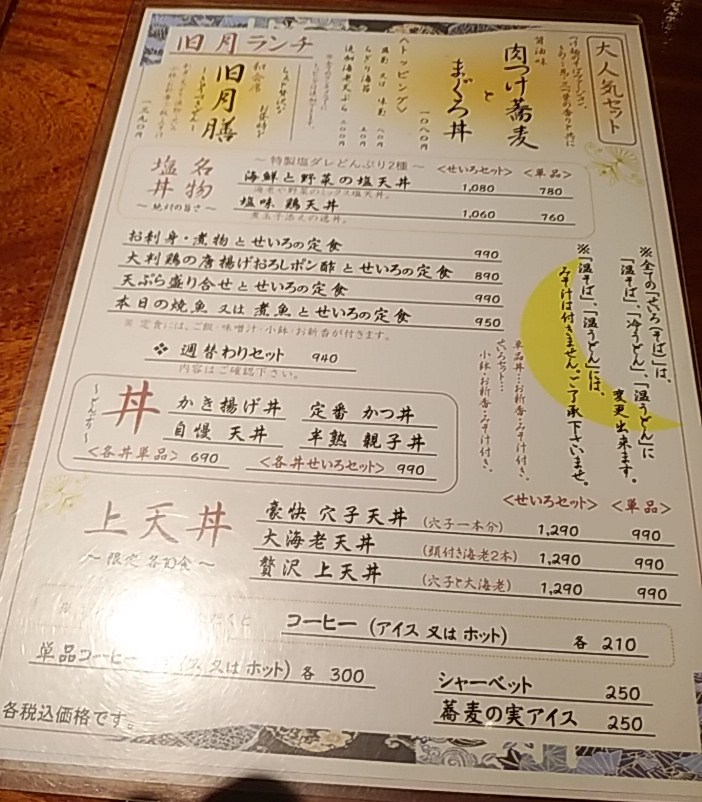 大人気セット
醤油味
肉つけ蕎麦
と
まぐろ丼
一〇八〇円
〈トッピング〉
旧月ランチ
和会席
旧月膳
一三九〇円
塩 名
丼 物
～特製塩ダレどんぶり2種～ <せいろセット> <単品>
海鮮と野菜の塩天丼 1,080 780
海老や野菜のミックス塩天丼。
塩味 鶏天丼 1,060 760
煮玉子添えの塩丼。
お刺身・煮物とせいろの定食 990
大判鶏の唐揚げおろしポン酢とせいろの定食 890
天ぷら盛り合せとせいろの定食 990
本日の焼魚又は煮魚とせいろの定食 950
※ 定食には、ご飯・味噌汁・小鉢・お新香が付きます。
週替わりセット 940
内容はご確認下さい。
※全ての「せいろ(そば)」は、
「温そば」、「冷うどん」、「温うどん」に
変更出来ます。
※「温そば」、「温うどん」には、
みそ汁は付きません。ご了承下さいませ。
単品丼…お新香・みそ汁付き。
せいろセット…
小鉢・お新香・みそ汁付き。
丼
～どんぶり～
かき揚げ丼 定番 かつ丼
自慢 天丼 半熟 親子丼
<各丼単品> 690 <各丼せいろセット> 990
上天丼
～限定 各10食～
<せいろセット> <単品>
豪快 穴子天丼 (穴子一本分) 1,290 990
大海老天丼 (頭付き海老2本) 1,290 990
贅沢 上天丼 (穴子と大海老) 1,290 990
コーヒー (アイス 又は ホット) 各 210
単品コーヒー 又は ホット) 各 300
シャーベット 250
蕎麦の実アイス 250
各税込価格です。